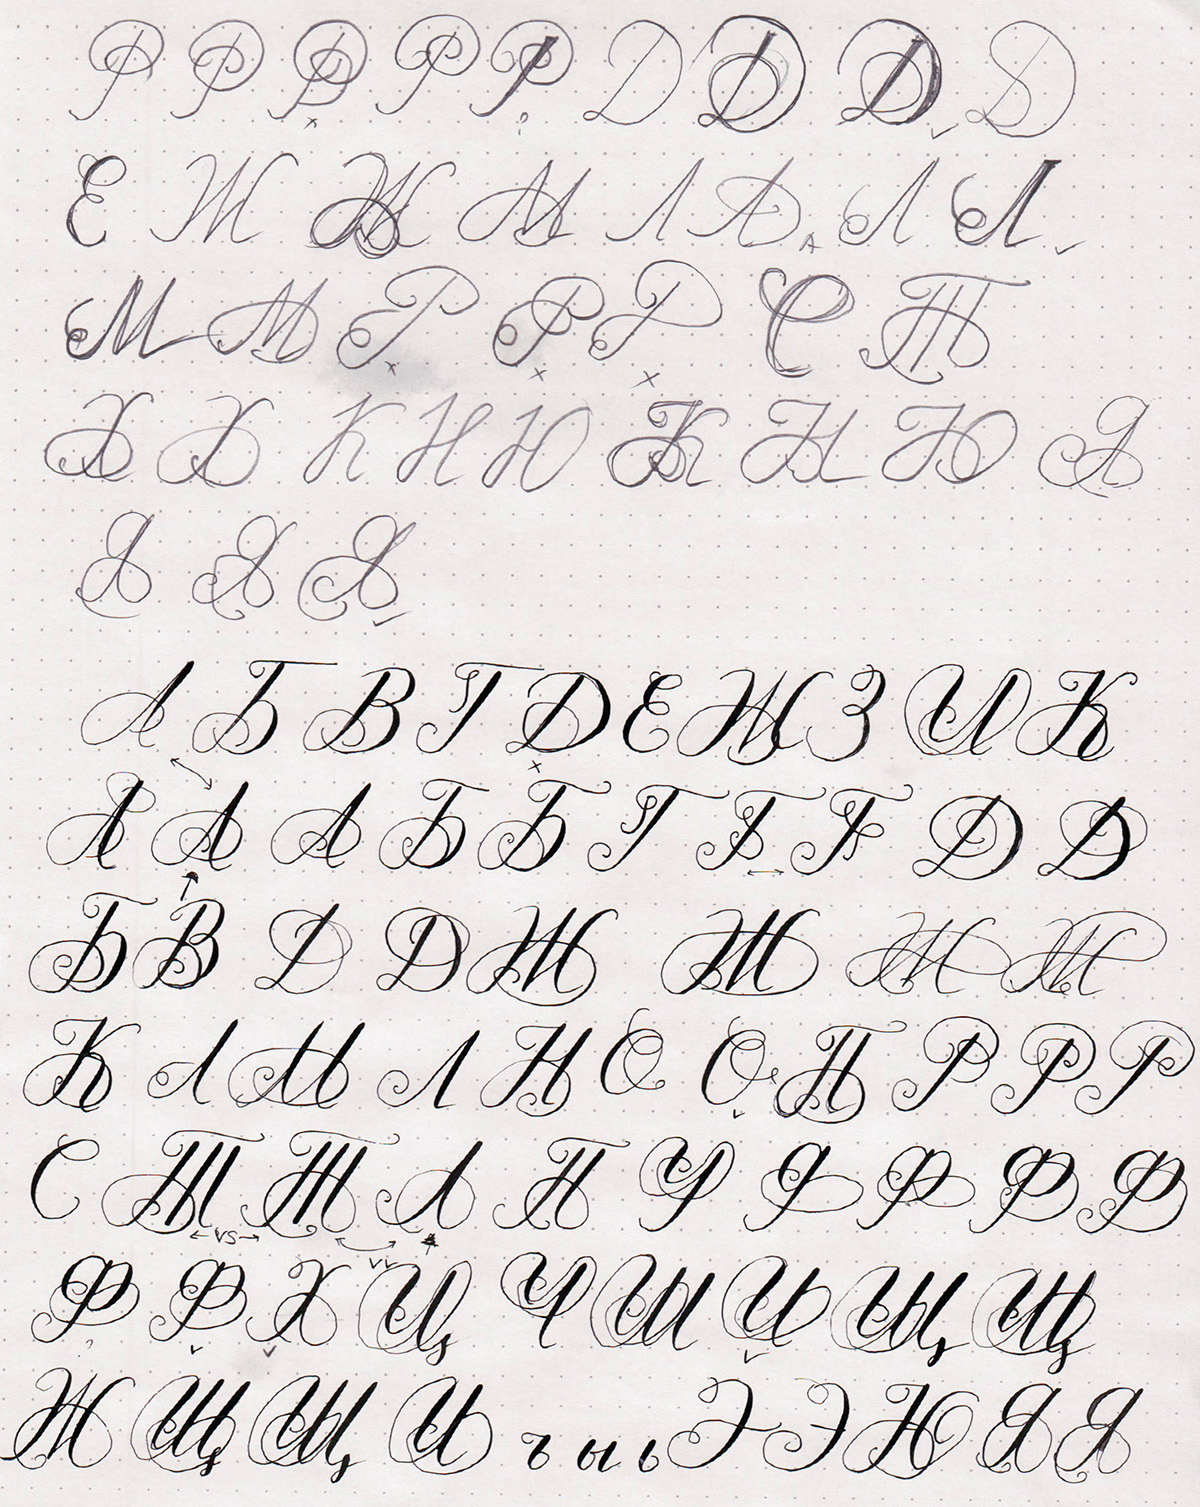 Р Р Р Р Р Д Д Д Д
Е Ж Ж М Л Д Л Л
М М Р Р Р С Т
Х Х К Н Ю К Н Ю Я
Я Я Я
А Б В Г Д Е Ж З И К
А А А Б Б Г Г Г Д Д
Б В Д Д Ж Ж Ж Ж
К Л М Л Н О О П Р Р Р
С Т Т Л П У Ф Ф Ф Ф
vs
Ф Ф Х Ц Ч Ш И Щ Щ
Ж Щ Щ И ъ ы ь Э Э Ю Я Я